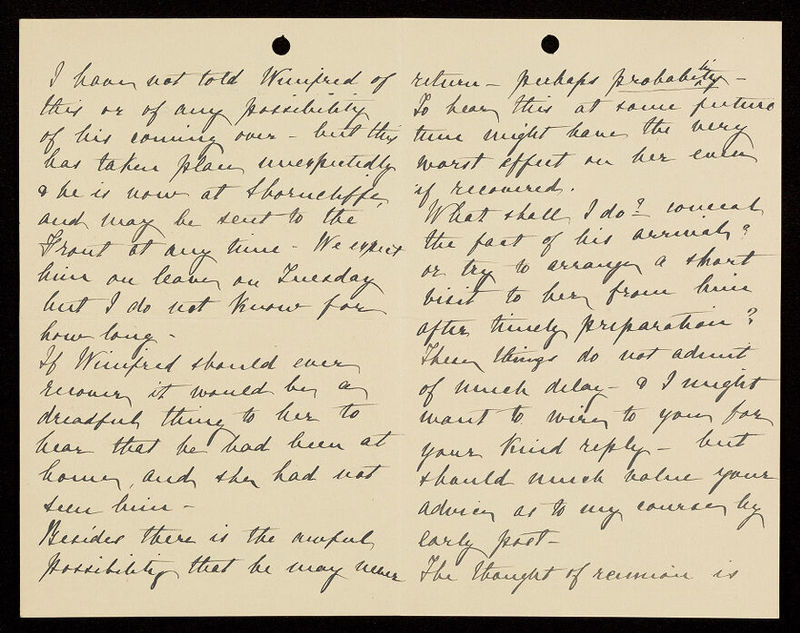 I have not told Winifred of
this or of any possibility
of his coming over - but this
has taken place unexpectedly
& he is now at Shorncliffe,
and may be sent to the
Front at any time - We expect
him on leave on Tuesday
but I do not know for
how long -
If Winifred should ever
recover it would be a
dreadful thing to her to
hear that he had been at
home, and she had not
seen him -
Besides there is the awful
possibility that he may never
return - perhaps probability -
To hear this at some future
time might have the very
worst effect on her even
if recovered.
What shall I do? conceal
the fact of his arrival?
or try to arrange a short
visit to her from him
after timely preparation?
These things do not admit
of much delay - & I might
want to wire to you for
your kind reply - but
should much value your
advice as to my course by
early post -
The thought of reunion is